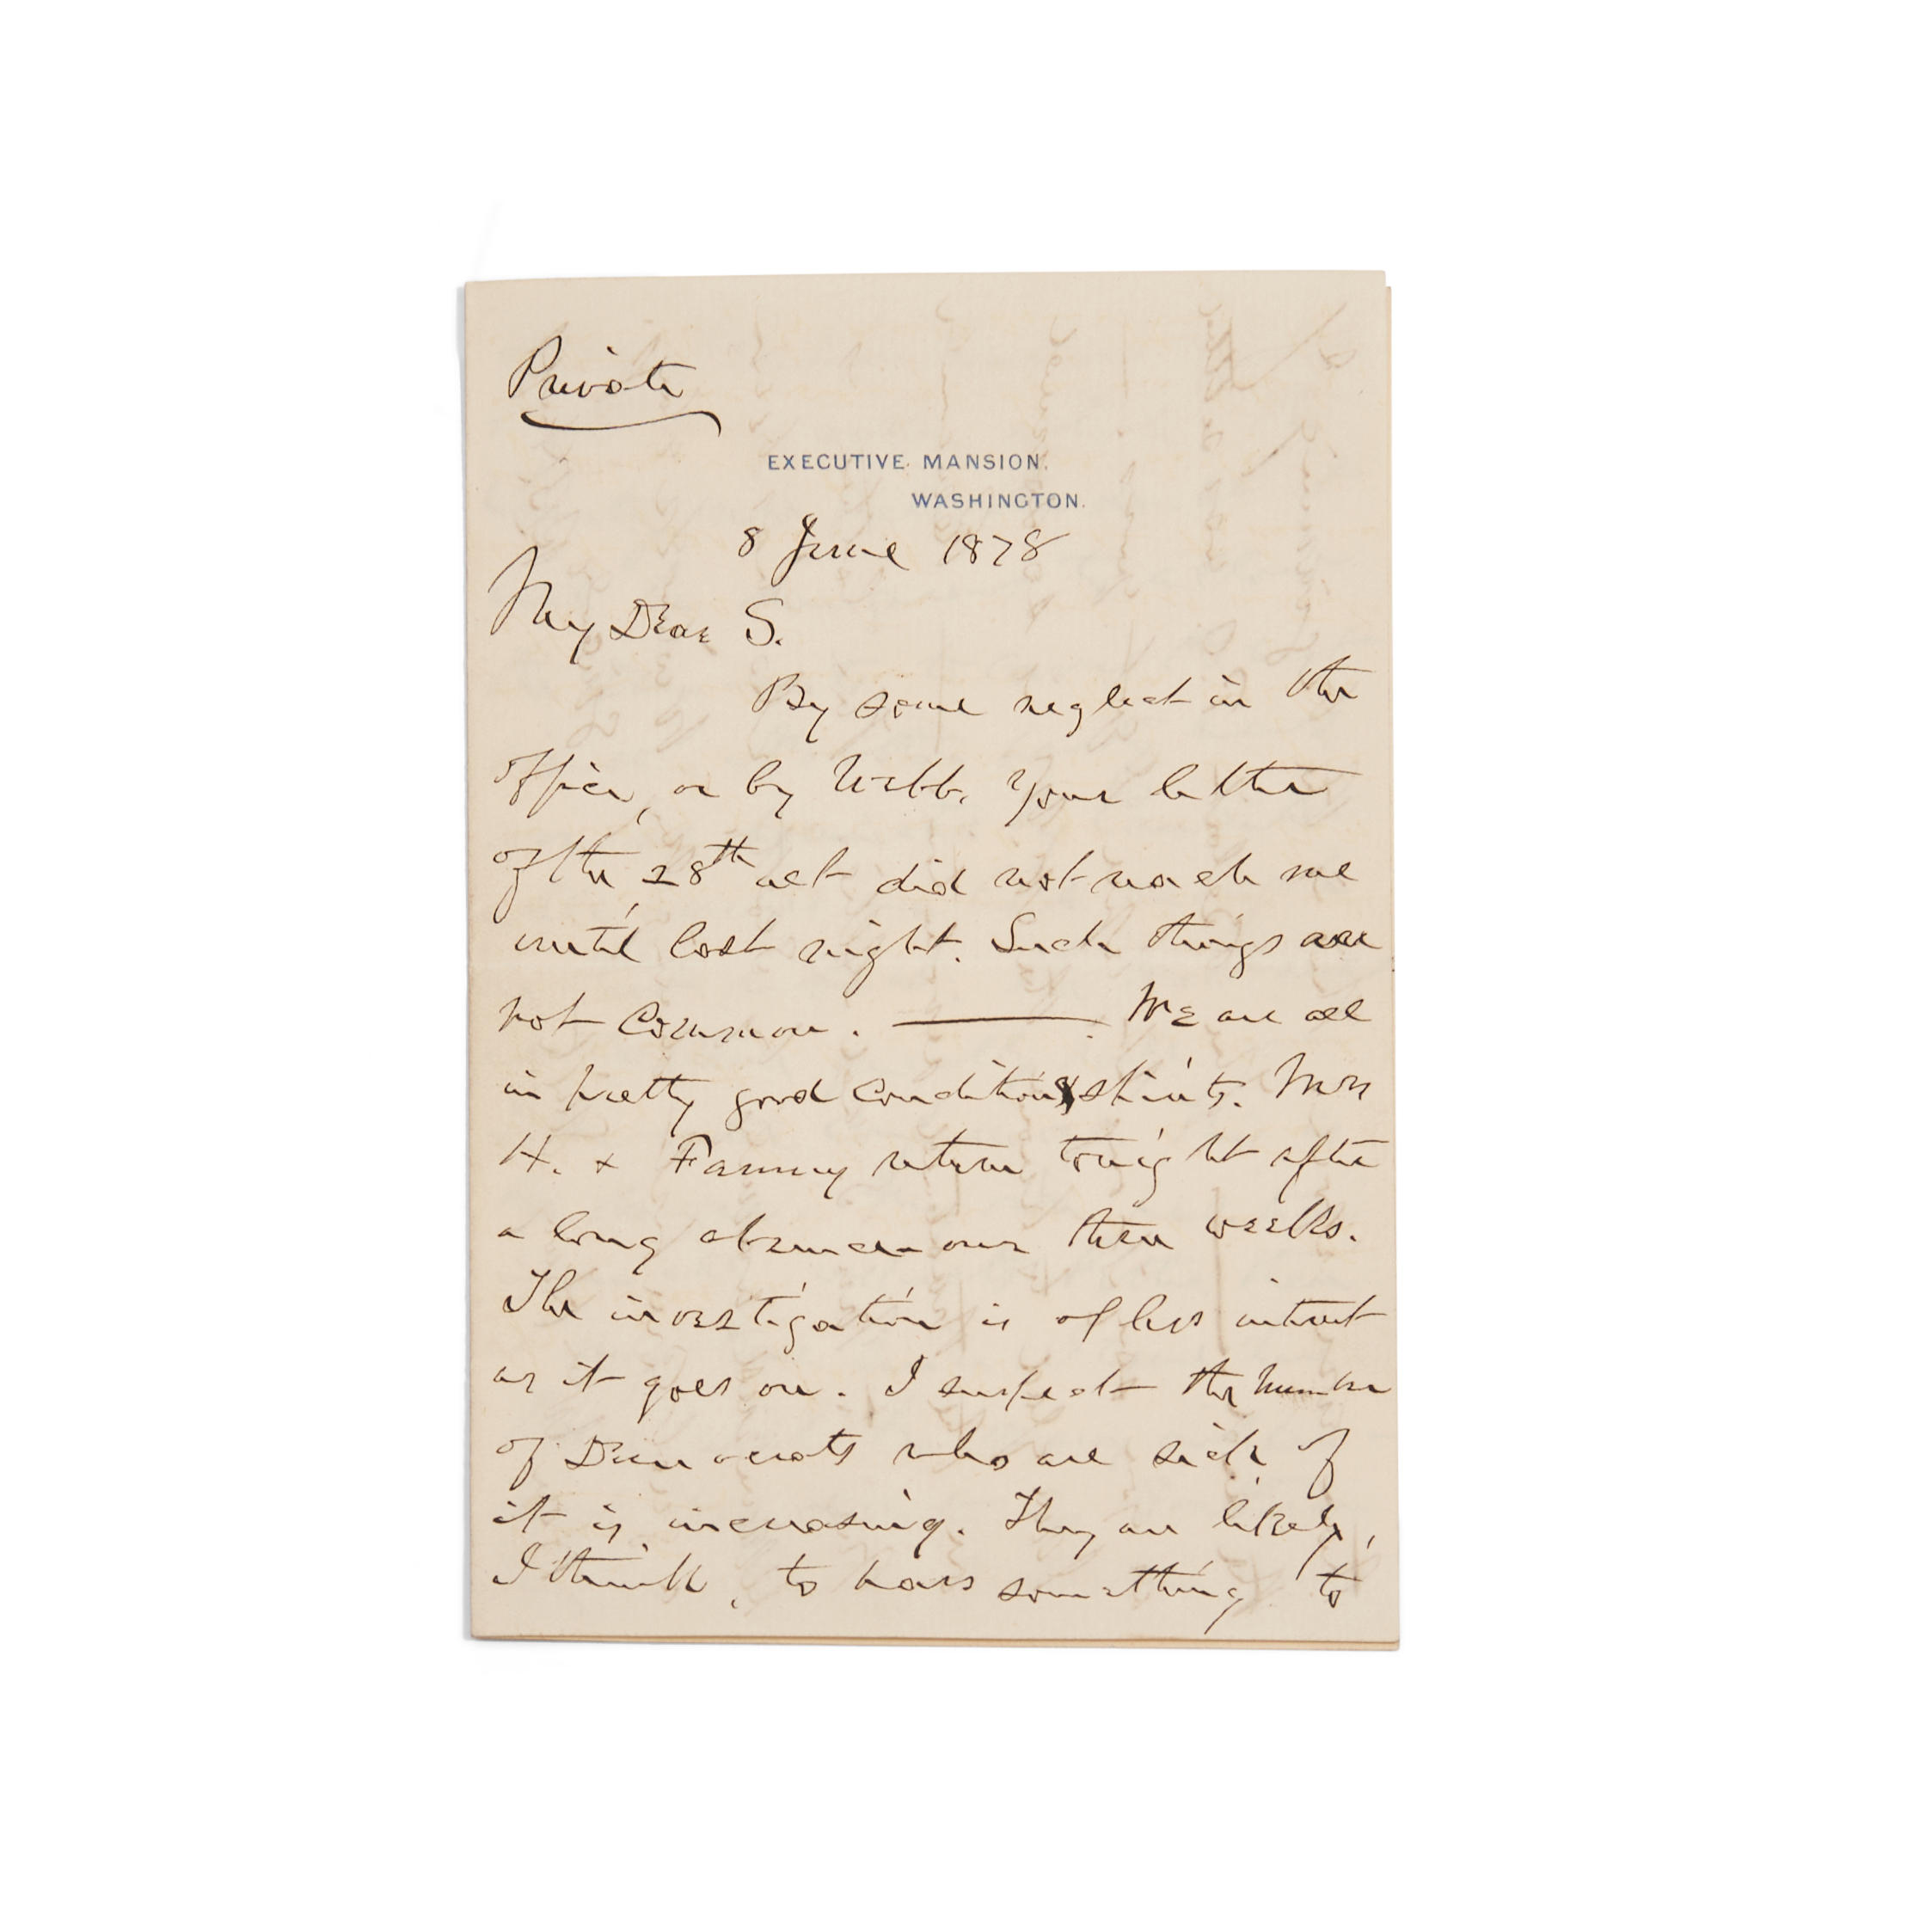 Private
EXECUTIVE MANSION.
WASHINGTON.
8 June 1878
My Dear S.
By some neglect in the
office, or by Webb. Your letter
of the 28th ult did not reach me
until last night. Such things are
not common. — We are all
in pretty good condition & spirits. Mrs
H. & Fanny return tonight after
a long absence over three weeks.
The investigation is of less interest
as it goes on. I suspect the number
of Democrats who are sick of
it is increasing. They are likely,
I think, to have something to